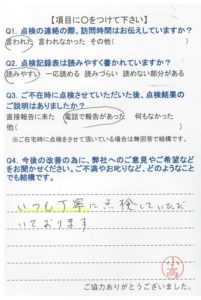 【項目に○をつけて下さい】
Q1. 点検の連絡の際、訪問時間はお伝えしていますか?
言われた 言われなかった その他( )
Q2. 点検記録表は読みやすく書かれていますか?
読みやすい 一応読める 読みづらい 読めない部分がある
Q3. ご不在時に点検させていただいた後、点検結果の
ご説明はありましたか?
直接報告に来た 電話で報告があった 何もなかった
※ご在宅時に点検をさせて頂いている場合は無回答で結構です。
Q4. 今後の改善の為に、弊社へのご意見やご希望など
をお聞かせください。ご不満やお叱りなど、どのようなこと
でも結構です。
いつも丁寧に点検していただ
いております
小高
ご協力ありがとうございました。